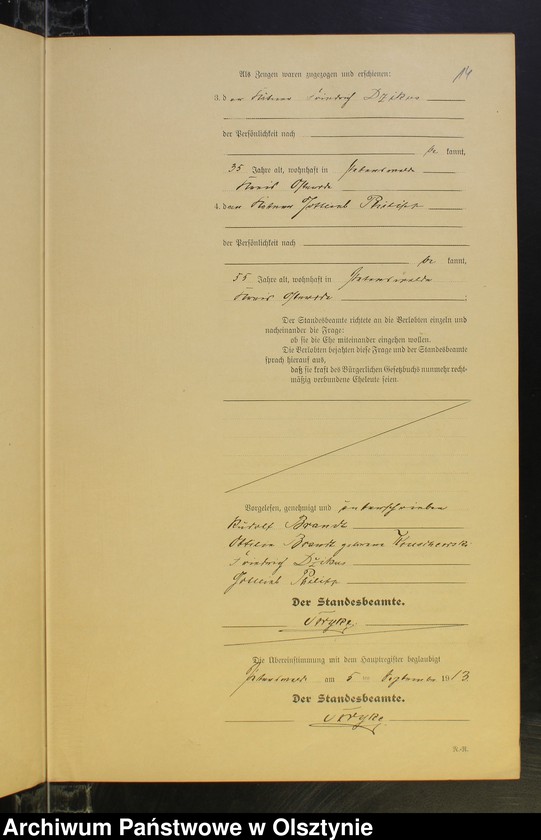 14
Als Zeugen waren zugezogen und erschienen:
3. der Kätner Friedrich Dzikus
der Persönlichkeit nach
be kannt,
35 Jahre alt, wohnhaft in Peterswalde
Kreis Osterode
4. der Kätner Gottlieb Philipp
der Persönlichkeit nach
be kannt,
55 Jahre alt, wohnhaft in Peterswalde
Kreis Osterode ;
Der Standesbeamte richtete an die Verlobten einzeln und
nacheinander die Frage:
ob sie die Ehe miteinander eingehen wollen.
Die Verlobten bejahten diese Frage und der Standesbeamte
sprach hierauf aus,
daß sie kraft des Bürgerlichen Gesetzbuchs nunmehr recht-
mäßig verbundene Eheleute seien.
Vorgelesen, genehmigt und unterschrieben
Rudolf Brandt
Brandt geborene
Friedrich Dzikus
Gottlieb Philipp
Der Standesbeamte.
Die Übereinstimmung mit dem Hauptregister beglaubigt
Peterswalde am 5 ten September 1913
Der Standesbeamte.
N.-R.
Archiwum Państwowe w Olsztynie